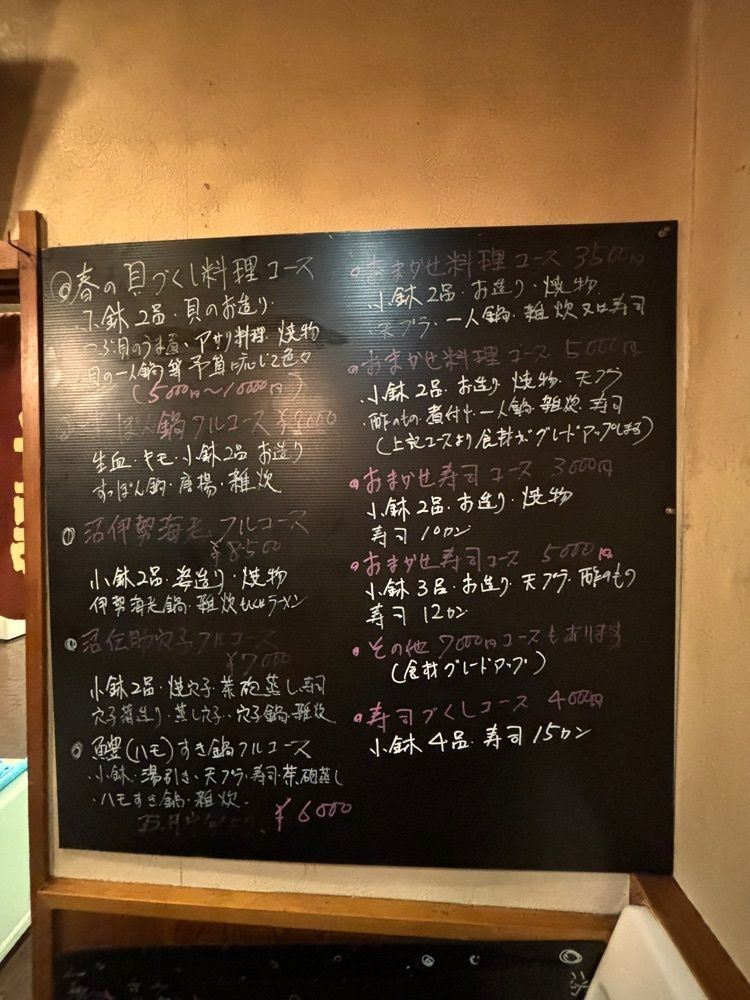 春の貝づくし料理コース
小鉢2品・貝のお造り
つぶ貝のうま煮、アサリ料理・焼物
貝の一人鍋等 予算に応じて色々
(5000円〜10000円)
すっぽん鍋フルコース ¥8000
生血・キモ・小鉢2品 お造り
すっぽん鍋・唐揚・雑炊
活伊勢海老フルコース
¥8500
小鉢2品・姿造り・焼物
伊勢海老鍋・雑炊 もしくはラーメン
活伝助穴子フルコース
¥7000
小鉢2品・焼穴子・茶碗蒸し・寿司
穴子薄造り・蒸し穴子・穴子鍋・雑炊
鱧(ハモ)すき鍋フルコース
小鉢・湯引き、天プラ・寿司・茶碗蒸し
・ハモすき鍋・雑炊.
¥6000
おまかせ料理コース 3500円
小鉢2品・お造り・焼物
天プラ・一人鍋・雑炊又は寿司
おまかせ料理コース 5000円
小鉢2品 お造り 焼物 天プラ
酢のもの 煮付 一人鍋・雑炊・寿司
(上記コースより食材がグレードアップします)
おまかせ寿司コース 3000円
小鉢2品・お造り・焼物
寿司 10カン
おまかせ寿司コース 5000円
小鉢3品・お造り・天プラ・酢のもの
寿司 12カン
その他 7000円コースもあります
(食材グレードアップ)
寿司づくしコース 4000円
小鉢4品・寿司15カン